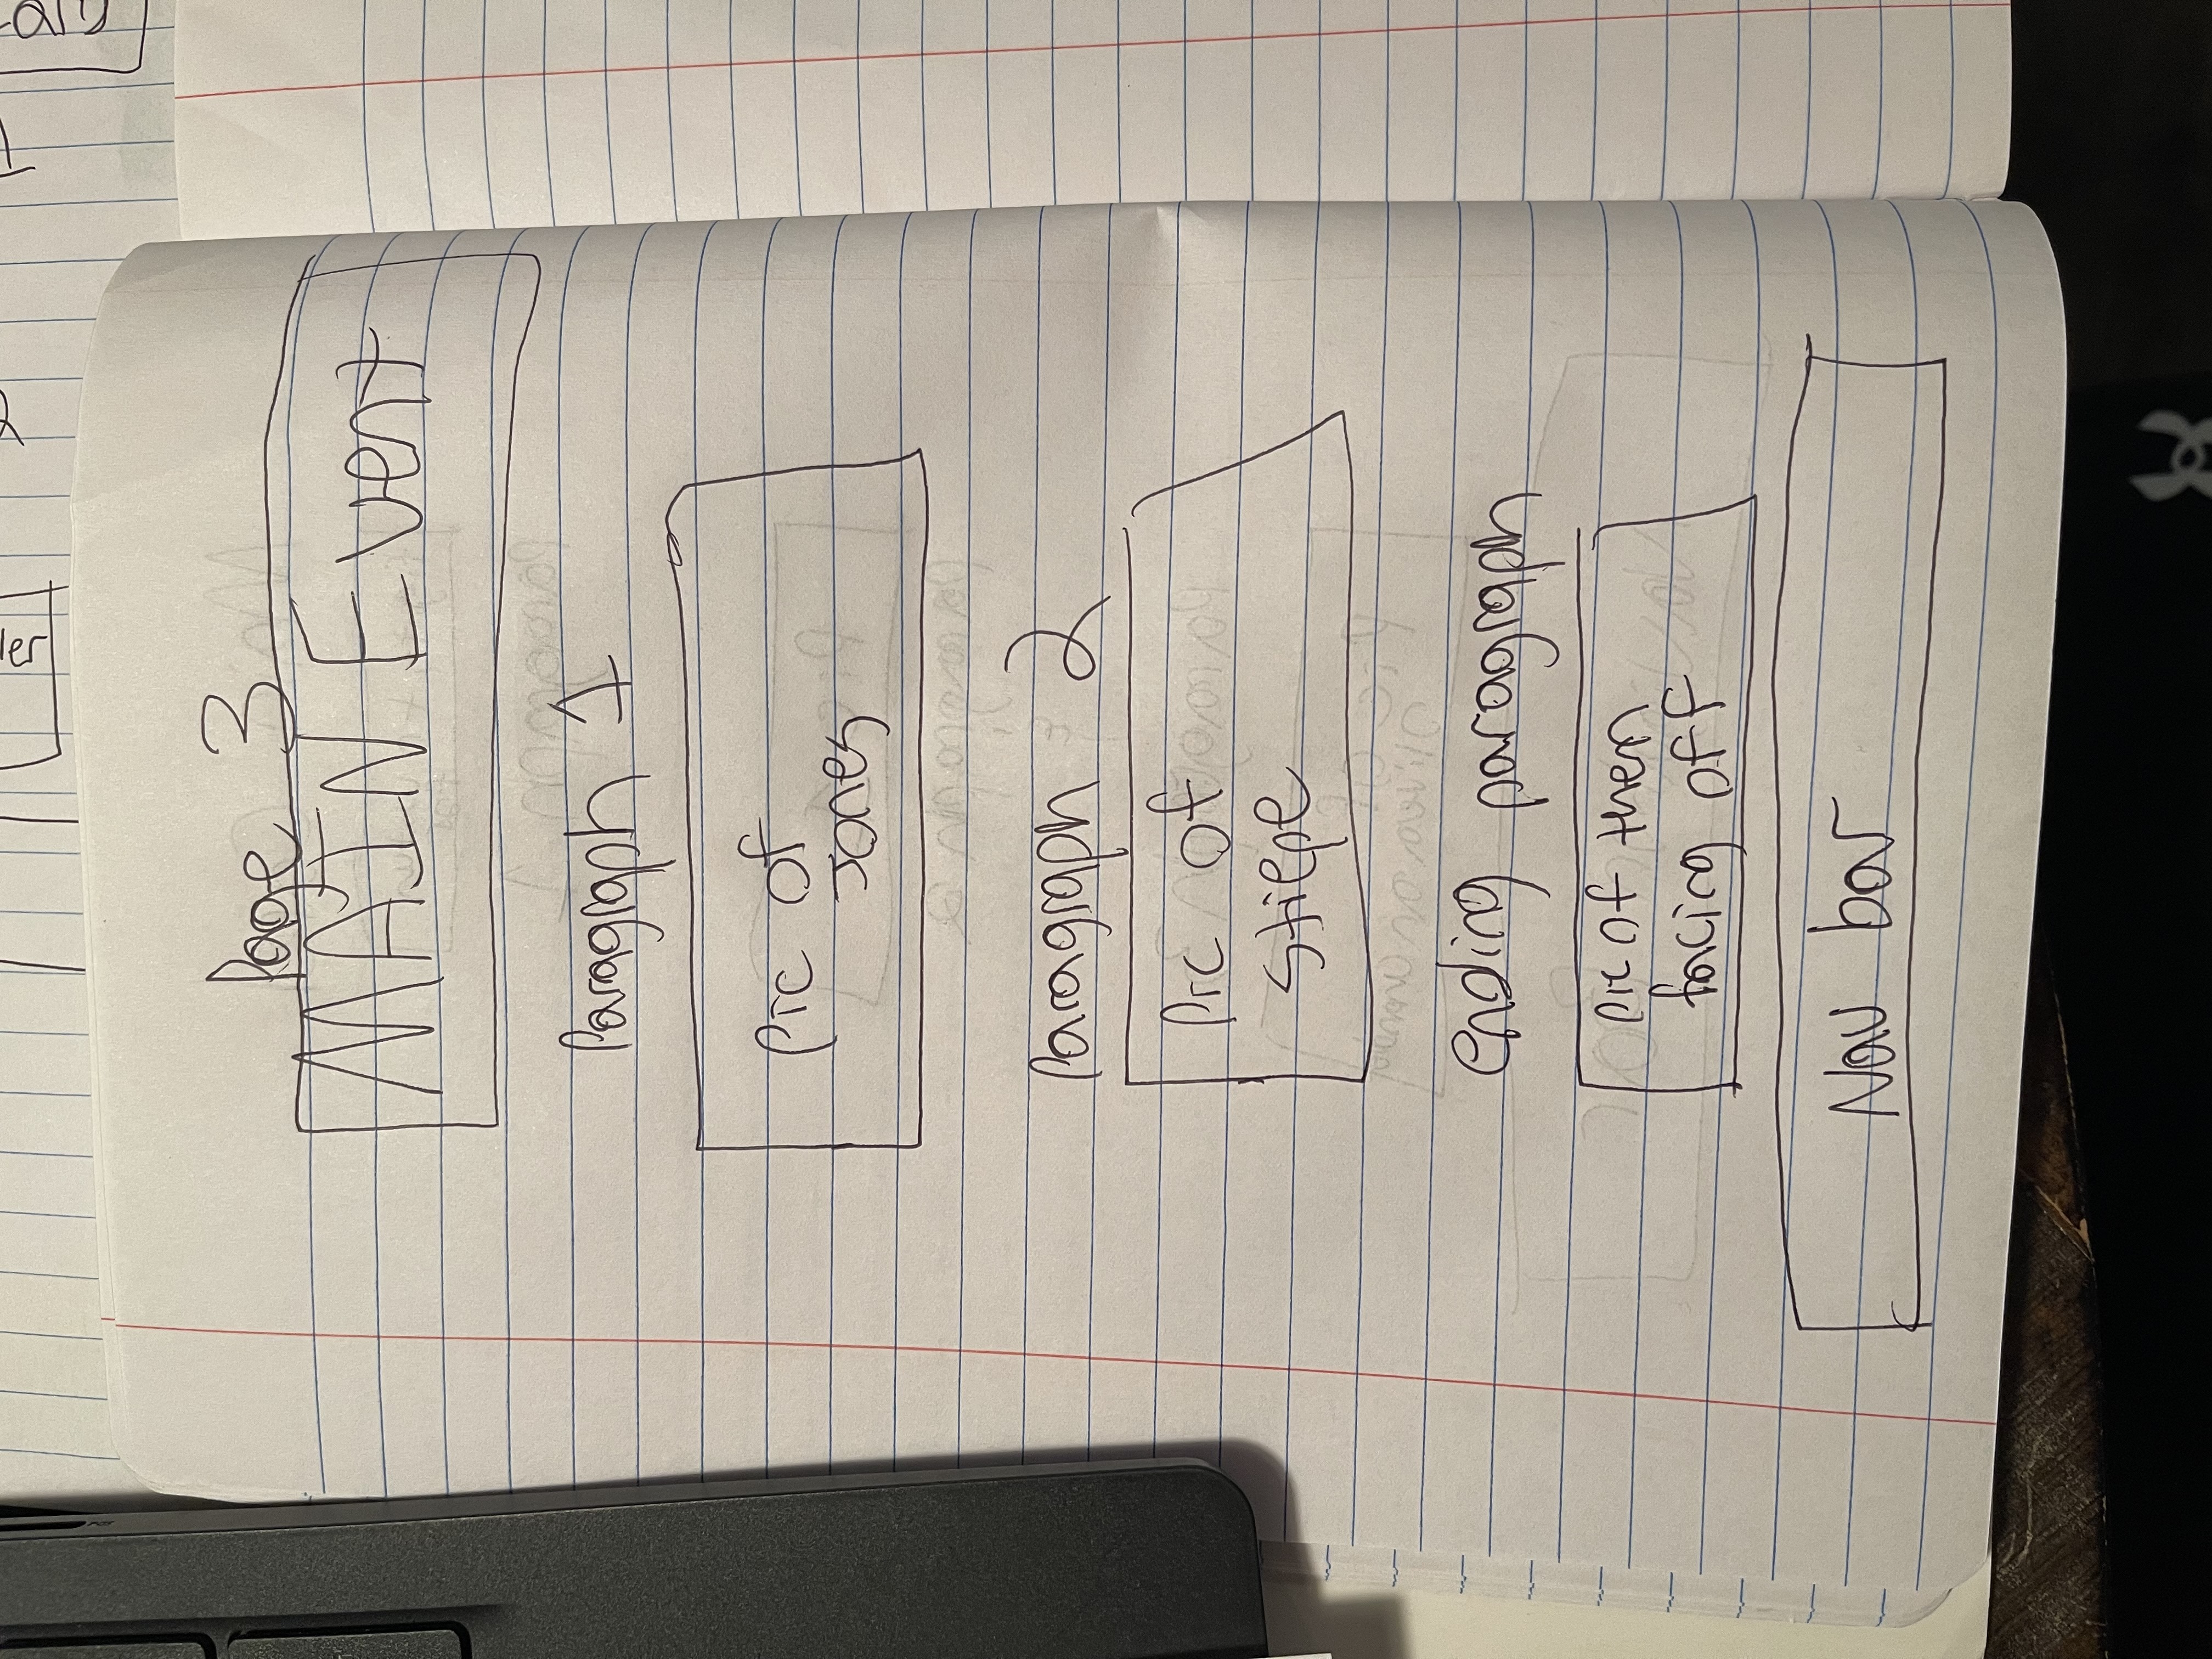 Page 3
MAIN Event
Paragraph 1
Pic of
Jones
Paragraph 2
Pic of
Stiepe
ending paragraph
pic of them
facing off
Nav bar